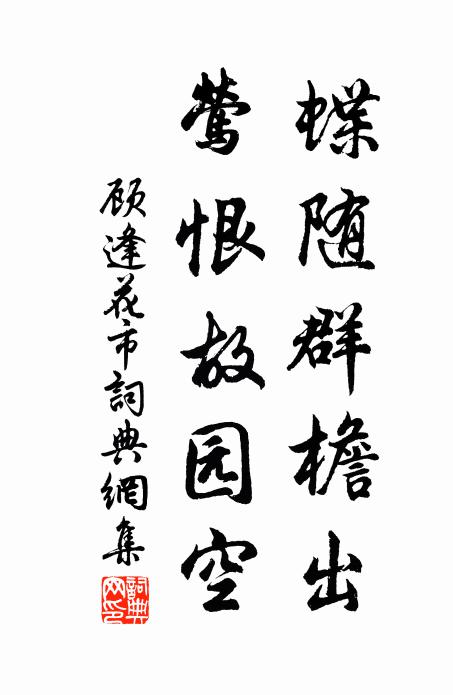 蝶随群檐出
莺恨故园空
顾逢花市詞典網集
詞典網印